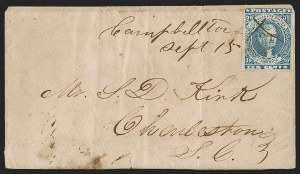 POSTAGE
Campbellton
Sept 15
TEN CENTS
Mr. S. D. Kirk
Charleston
S. C.